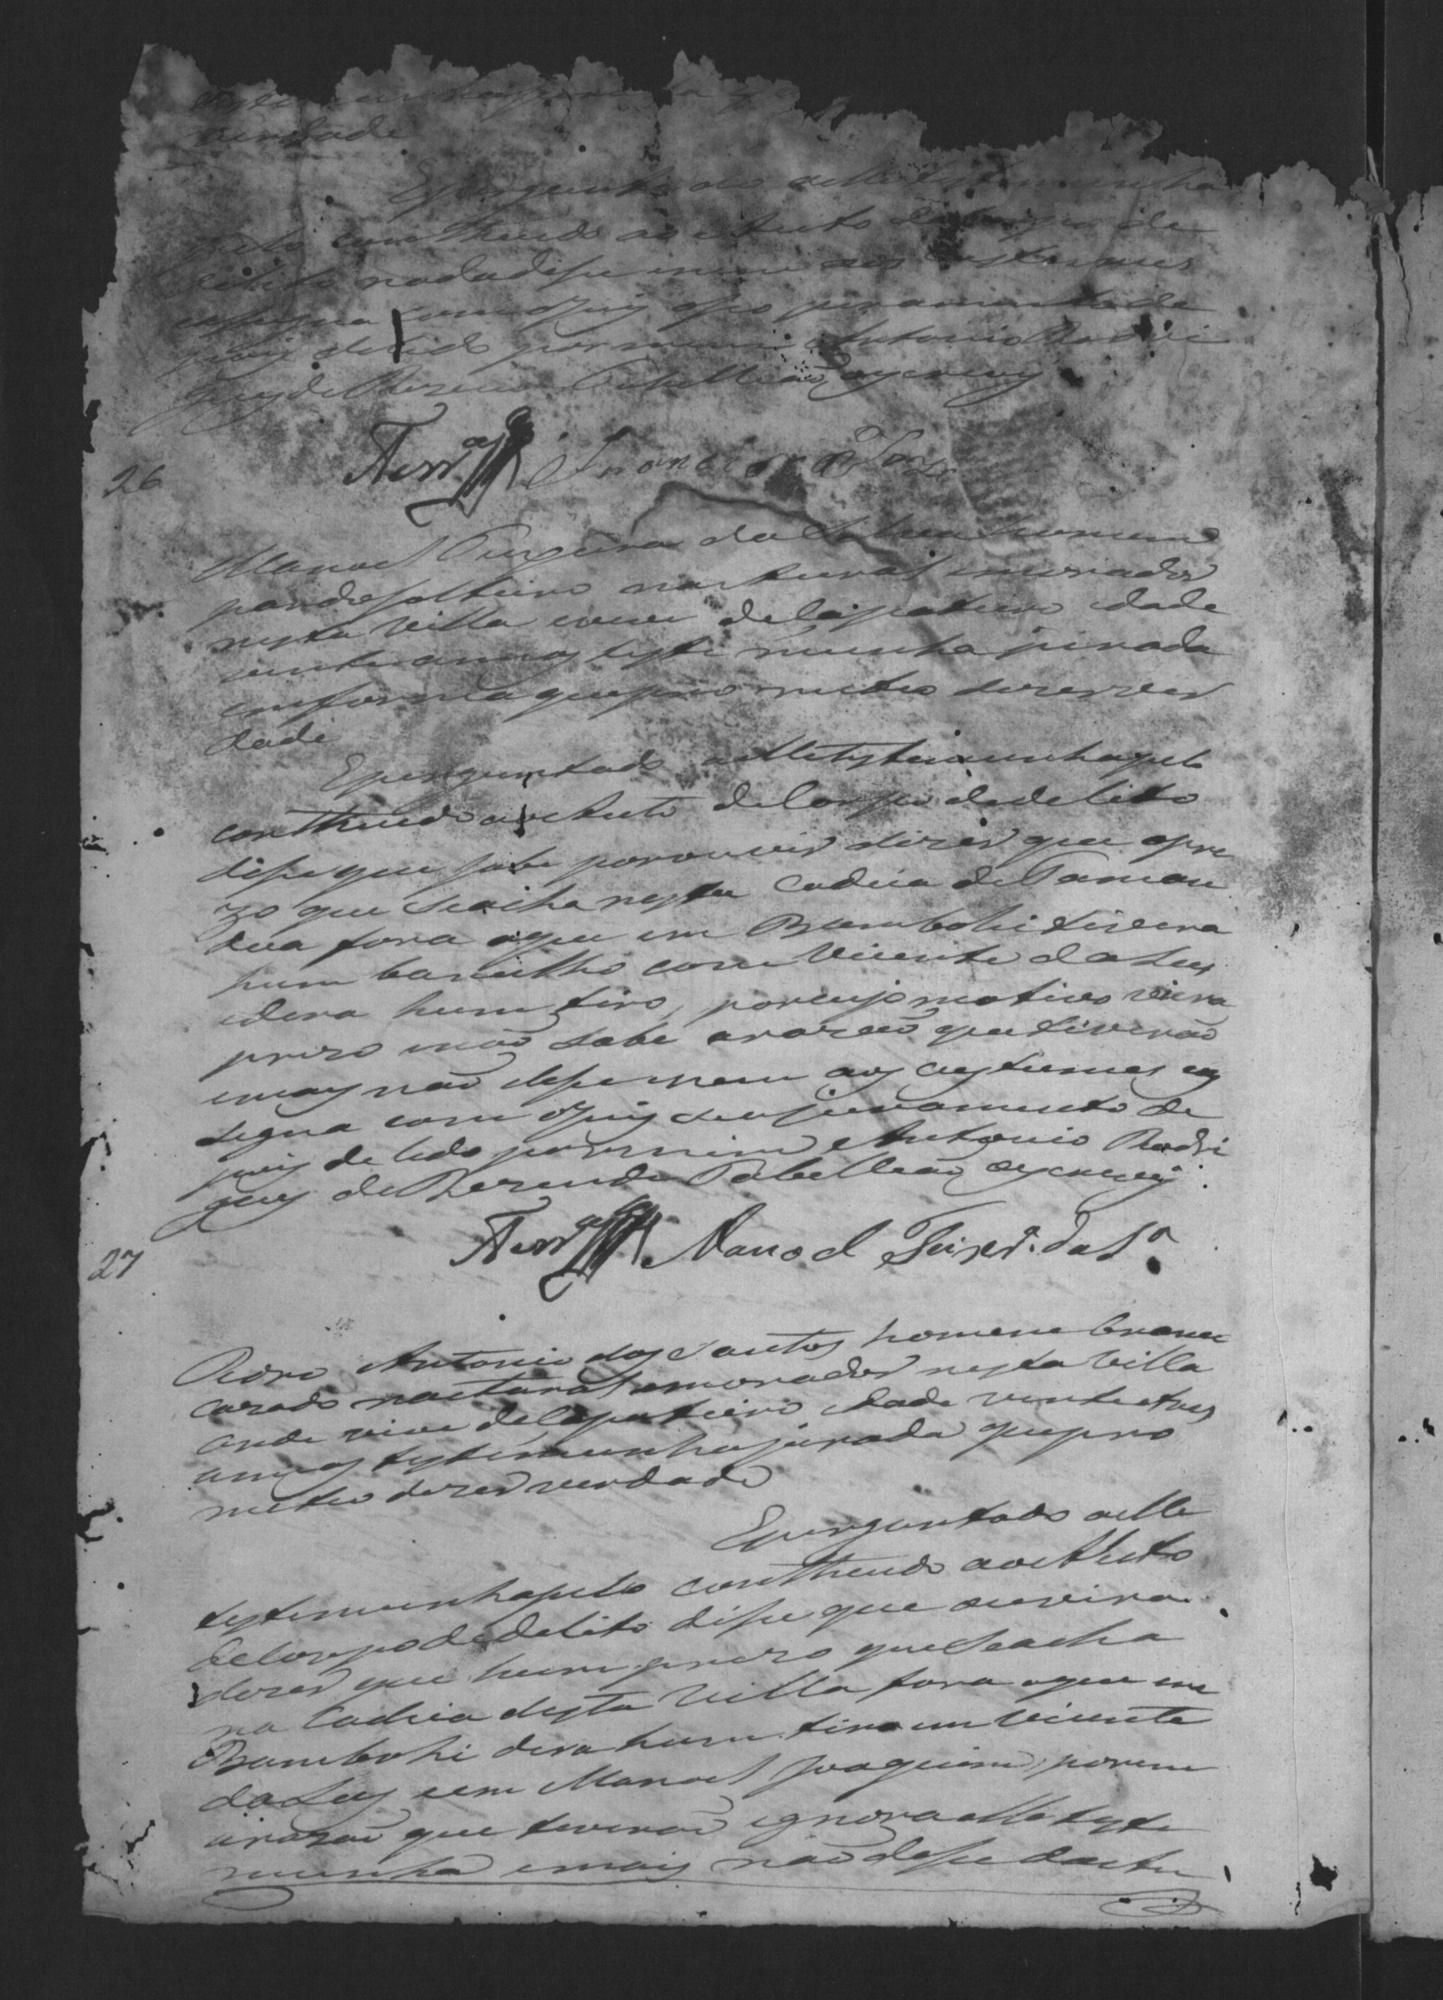 verdade
E perguntado a elle testemunha
pelo contheudo ao Auto de Corpo de
delito nada dise nem aos custumes
easigna com o Juis o seo juramento de
pois de lido por mim Antonio Rodri
gues de Rezende Tabelliaõ oescrevy
Ferr.as Francisco
26
Manoel Teixeira da Silva homem
pardo solteiro natural emorador
nesta Villa vive de Sapateiro idade
vinte annos testemunha jurada
emforma que prometeo dizer ver
dade
Eperguntado aelle testemunha pelo
contheudo ao Auto de Corpo de delito
dise que sabe por ouvir dizer que opre
zo que seacha nesta Cadeia de Taman
dua fora oque em Bambohi tivera
hum barulho com Vicente da Luz
edera hum tiro, porcujo motivo viera
prezo enaõ sabe arazaõ que tiveraõ
emais naõ dise nem aos custumes ea
signa com o Juis seo juramento de
pois de lido por mim Antonio Rodri
gues de Rezende Tabelliaõ oescrevy.
Ferr.as Manoel Teixr.ª da S.ª
27
Pedro Antonio dos Santos homem branco
cazado natural emorador nesta Villa
onde vive de Sapateiro idade vinte etres
annos testemunha jurada que pro
meteo dizer verdade
Eperguntado aelle
testemunha pelo contheudo ao Auto
de Corpo de delito dise que ouvira
dizer que hum prezo que seacha
na Cadeia desta Villa fora oque em
Bambohi dera hum tiro em Vicente
da Luz eem Manoel Joaquim, porem
arazaõ que tiveraõ ignora elle teste
munha emais naõ dise deste